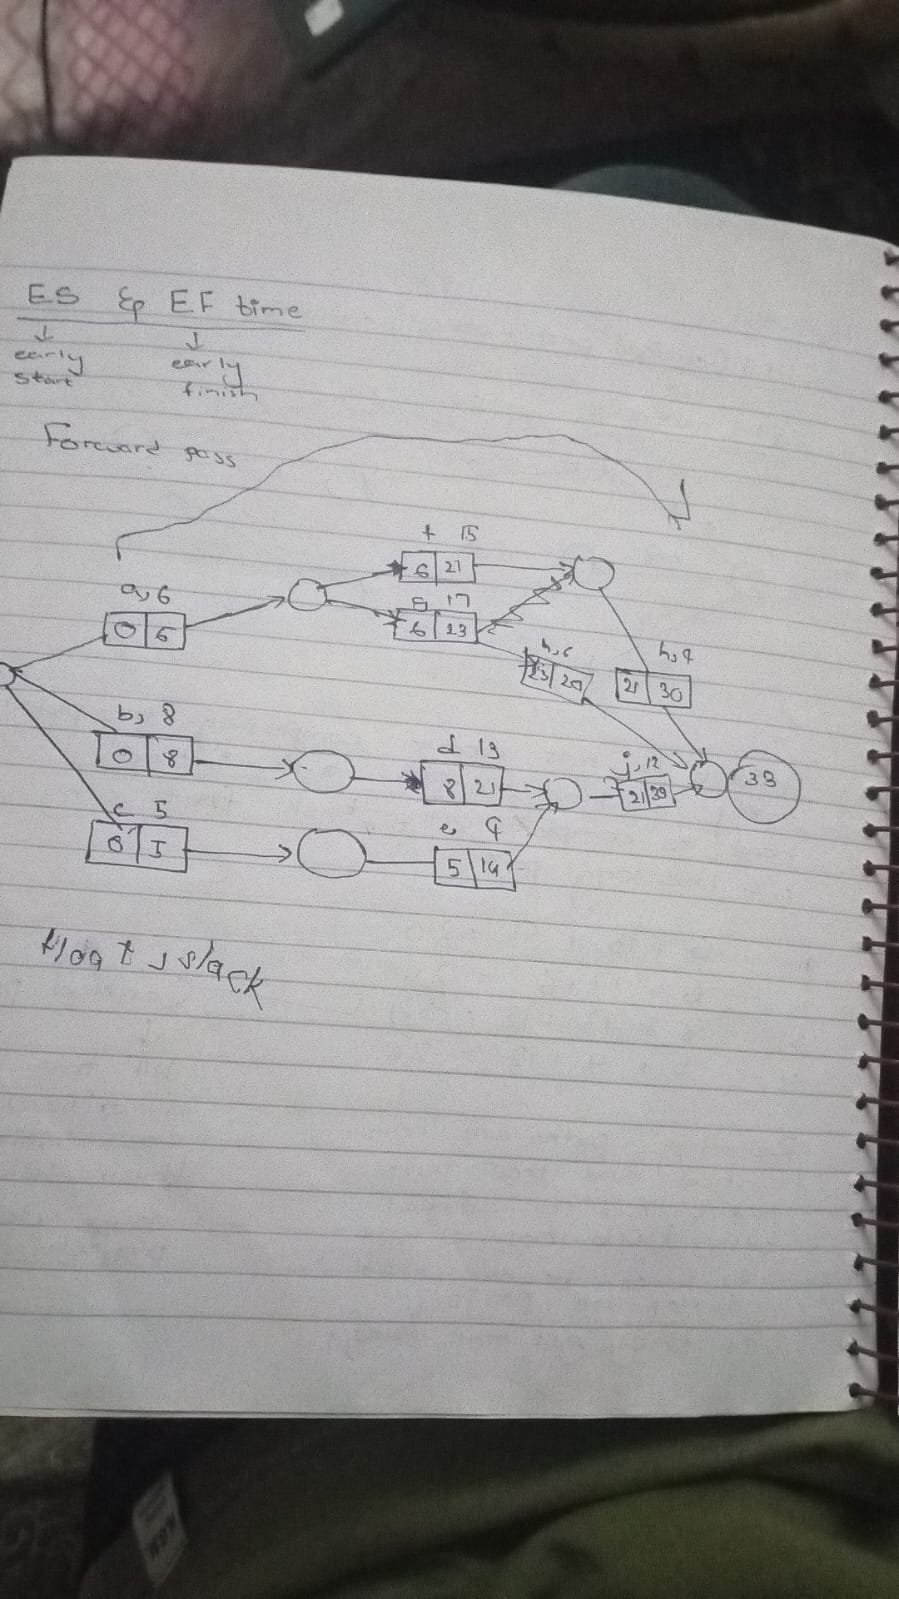 ES & EF time
↓ ↓
early early
start finish
Forward pass
f 15
6 21
a, 6
0 6
g 17
6 23
h, 6
23 29
h, 9
21 30
b, 8
0 8
d 13
8 21
j, 12
21 33
33
c 5
0 5
e 9
5 14
float, slack